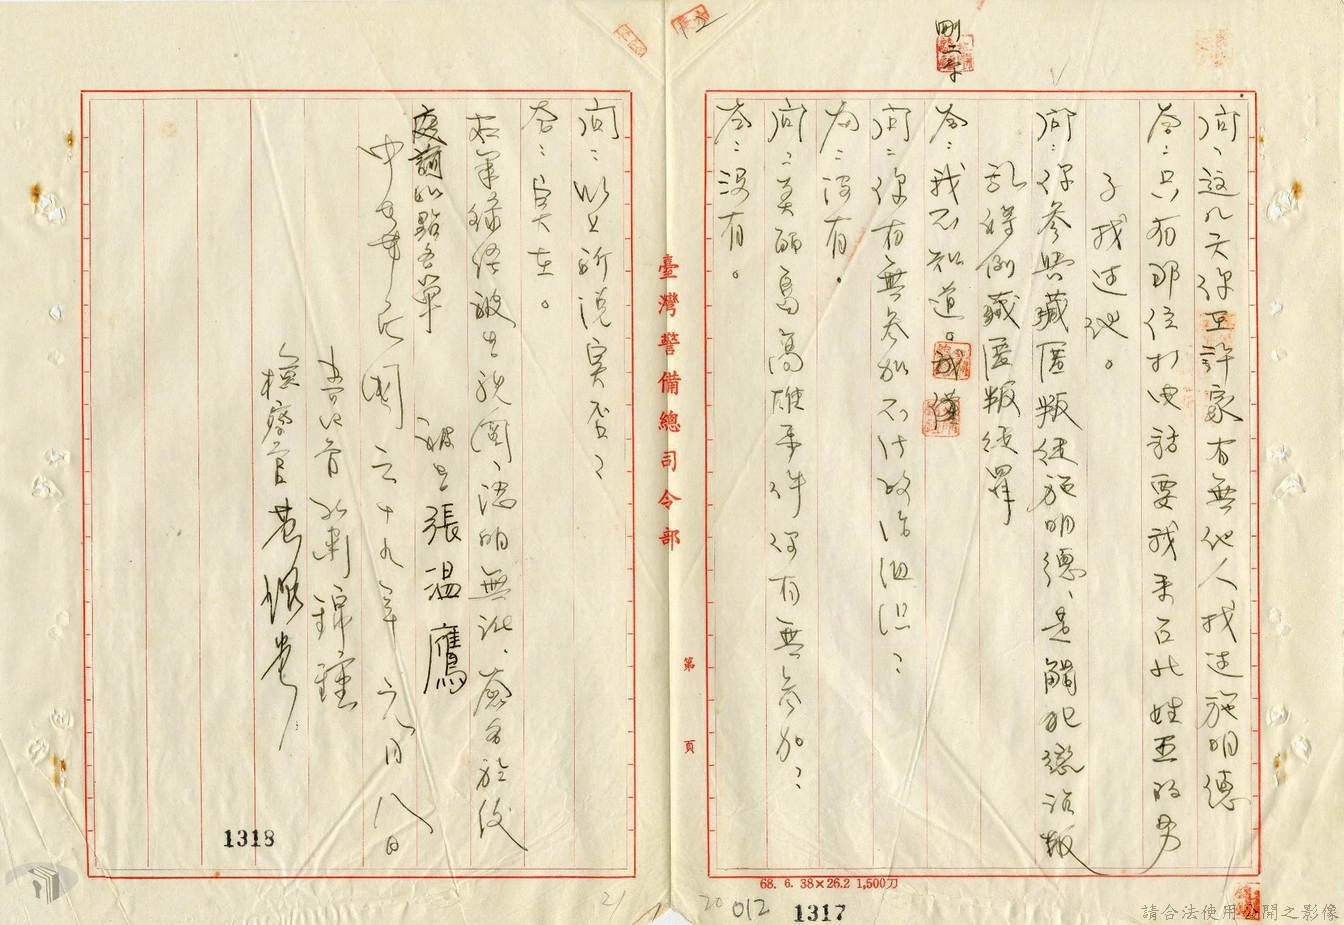 刪二字
問：這几天你在許家有無他人找过施明德
答：只有那位打电話要我来召北姓王的男
子找过他。
問：你參與藏匿叛徒施明德、是觸犯懲治叛
乱條例藏匿叛徒罪
答：我不知道。
問：你有無參加不法政治組織？
答：没有。
問：美麗島高雄事件你有無參加？
答：没有。
臺灣警備總司令部
第 頁
68. 6. 38×26.2 1,500刀
012
1317
20
問：以上所說實否？
答：實在。
右筆錄經被告親閱、認明無訛、簽名於後
庭詢心點名單 被告 張温鷹
中華民國六十九年六月八日
書記官 錦鍾
檢察官 黃
1318
21
請合法使用公開之影像